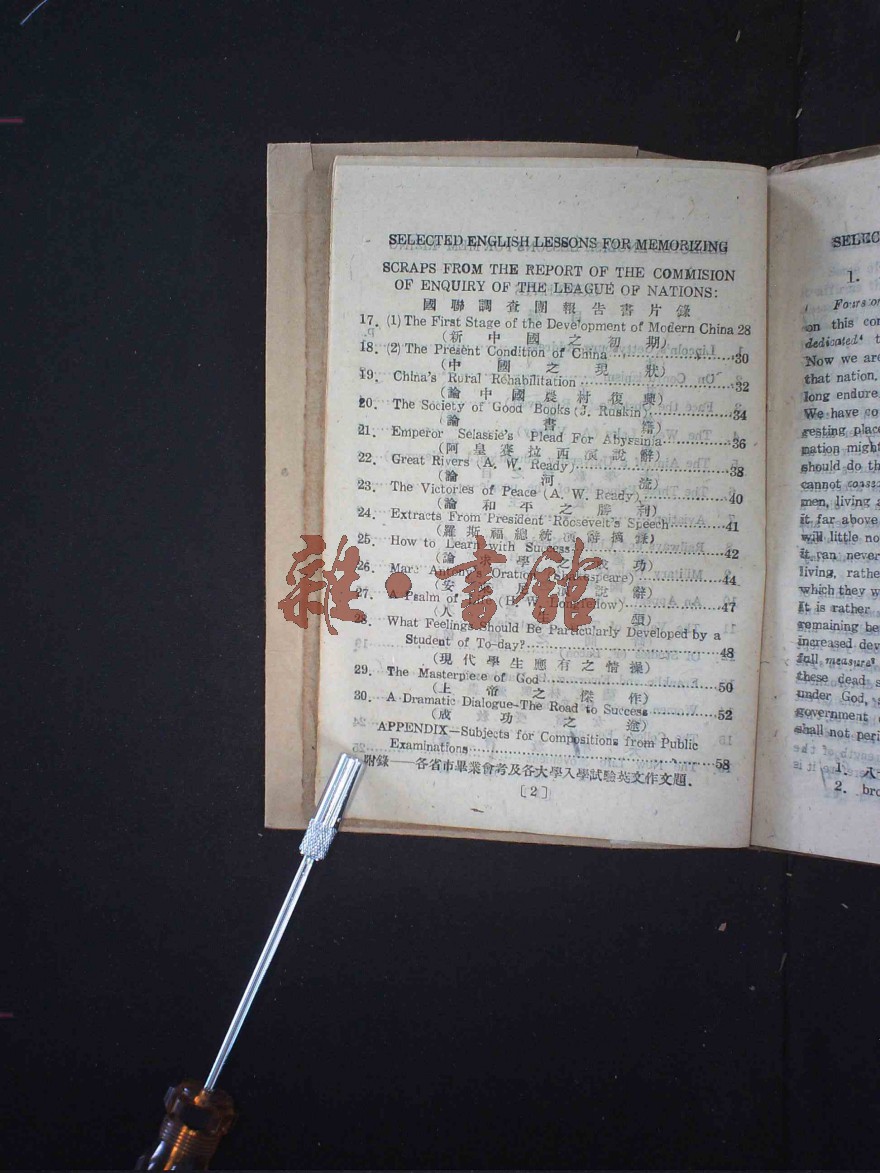 SELECTED ENGLISH LESSONS FOR MEMORIZING
SCRAPS FROM THE REPORT OF THE COMMISION
OF ENQUIRY OF THE LEAGUE OF NATIONS:
國聯調查團報告書片錄
17. (1) The First Stage of the Development of Modern China 28
(新中國之初期)
18. (2) The Present Condition of China 30
(中國之現狀)
19. China's Rural Rehabilitation 32
(論中國農村復興)
20. The Society of Good Books (J. Ruskin) 34
(論書籍)
21. Emperor Selassie's Plead For Abyssinia 36
(阿皇賽拉西演說辭)
22. Great Rivers (A. W. Ready) 38
(論河流)
23. The Victories of Peace (A. W. Ready) 40
(論和平之勝利)
24. Extracts From President Roosevelt's Speech 41
(羅斯福總統演辭摘錄)
25. How to Learn with Success 42
(論求學之成功)
26. Marc Antony's Oration (Shakespeare) 44
(安 演說辭)
27. A Psalm of Life (H. W. Longfellow) 47
(人生頌)
28. What Feelings Should Be Particularly Developed by a
Student of To-day? 48
(現代學生應有之情操)
29. The Masterpiece of God 50
(上帝之傑作)
30. A Dramatic Dialogue-The Road to Success 52
(成功之途)
APPENDIX—Subjects for Compositions from Public
Examinations 58
附錄——各省市畢業會考及各大學入學試驗英文作文題.
[2]
雜·書館
SELEC
1.
Fours or
on this con
dedicated t
Now we are
that nation.
long endure
We have co
resting place
nation might
should do th
cannot conse
men, living a
it far above
will little no
it can never
living, rathe
which they w
It is rather
remaining be
increased dev
full measure
these dead s
under God, s
government o
shall not peri
1. 八
2. bro